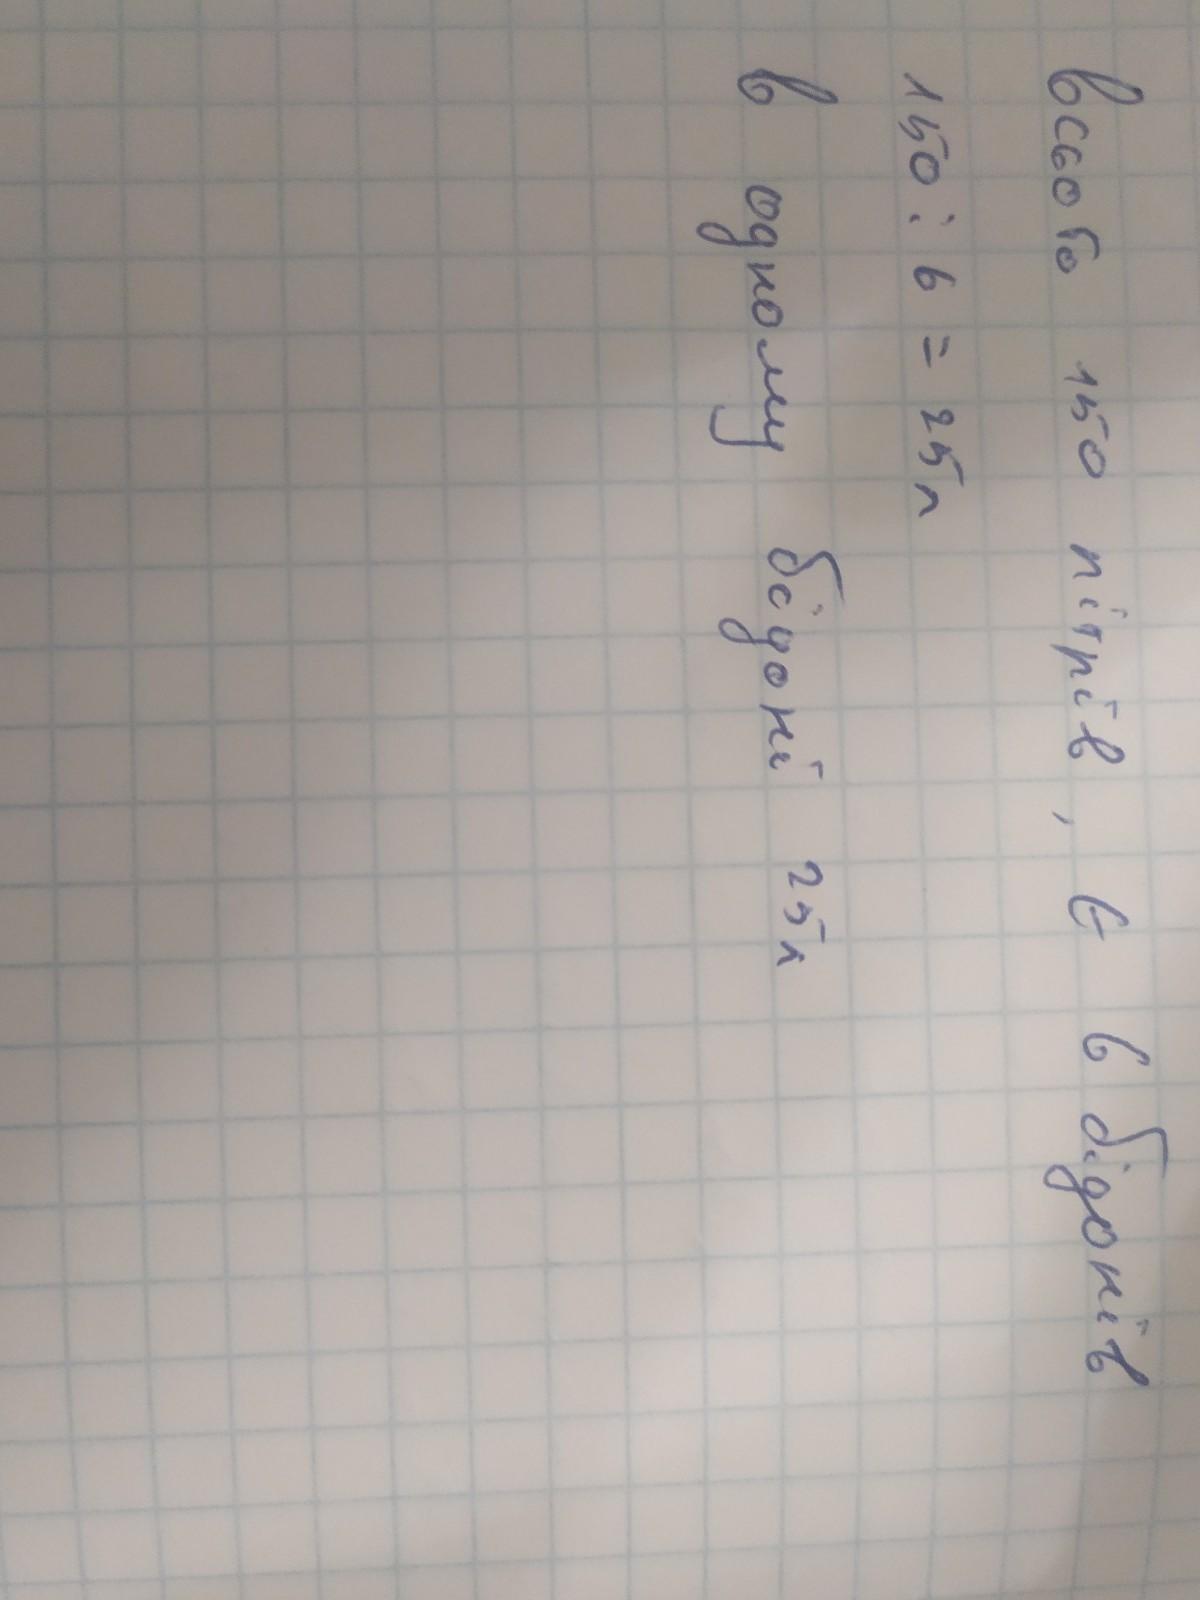 Всього 150 літрів, є 6 бідонів
150 : 6 = 25л
в одному бідоні 25л